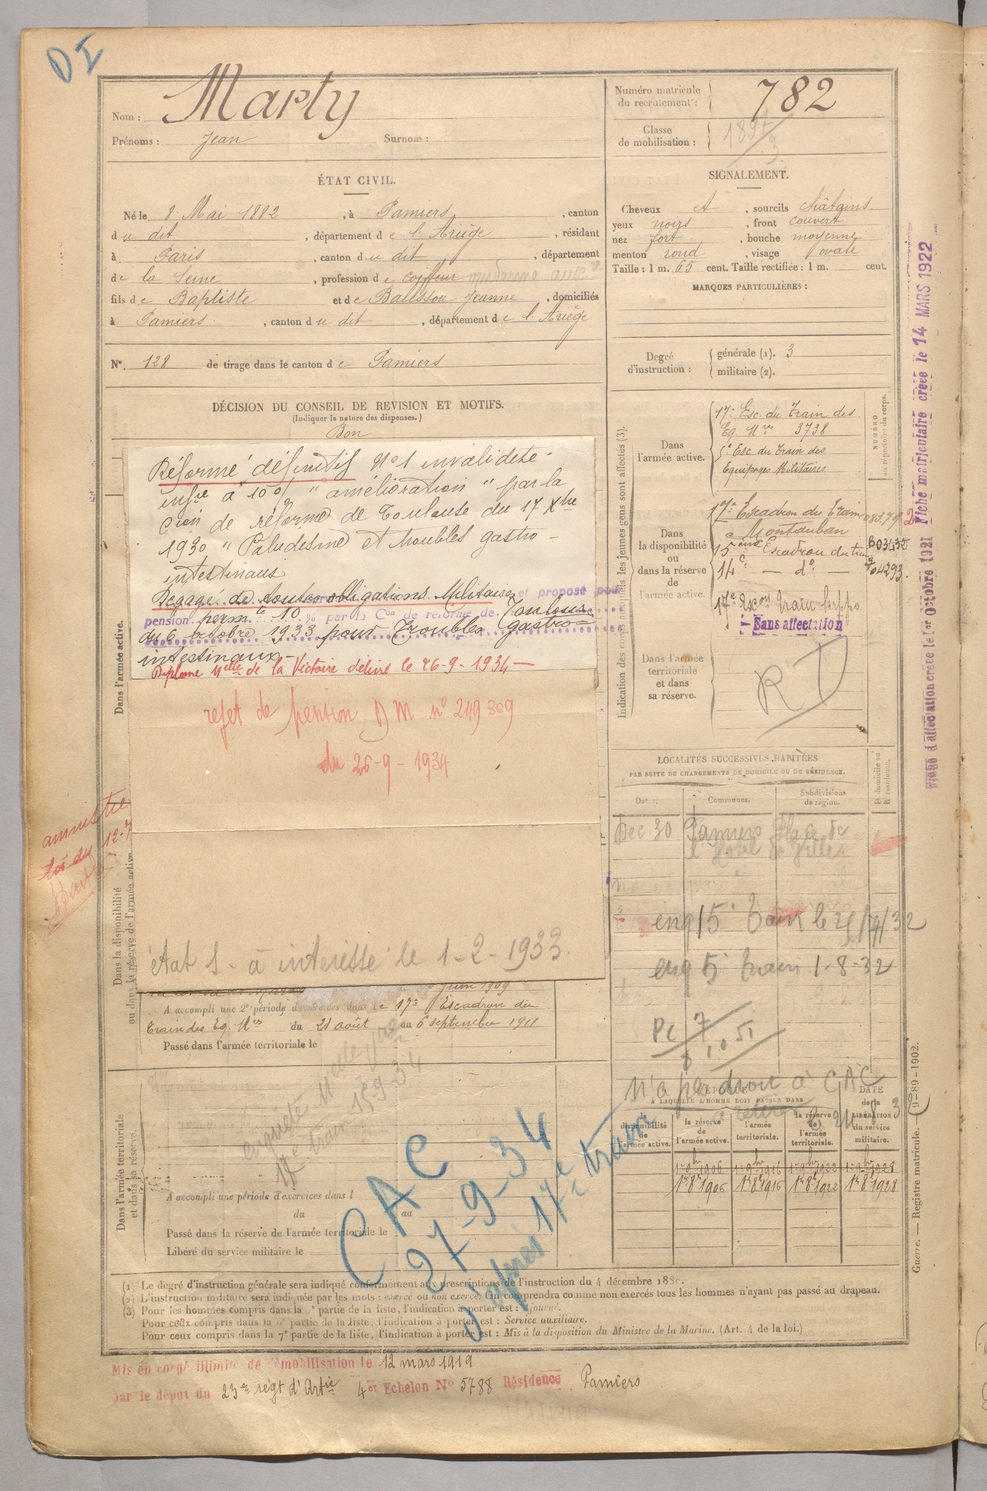 DI
Nom : Marty
Prénoms : Jean Surnom :
Numéro matricule
du recrutement : 782
Classe
de mobilisation :
ÉTAT CIVIL.
Né le 8 Mai 1882, à Pamiers, canton
du dit, département de l'Ariège, résidant
à Paris, canton du dit, département
de la Seine, profession de coiffeur
fils de Baptiste et de Jeanne, domiciliés
à Pamiers, canton du dit, département de l'Ariège
N° 128 de tirage dans le canton de Pamiers
SIGNALEMENT.
Cheveux et, sourcils châtains
yeux noirs, front couvert
nez fort, bouche moyenne
menton rond, visage ovale
Taille : 1 m. 65 cent. Taille rectifiée : 1 m. cent.
MARQUES PARTICULIÈRES :
Degré
d'instruction :
générale (1). 3
militaire (2).
DÉCISION DU CONSEIL DE REVISION ET MOTIFS.
(Indiquer la nature des dispenses.)
Bon
Réformé définitif N° 1 invalidité
infre à 10% "amélioration" par la
Cion de réforme de Toulouse du 17 Xbre
1930 "Paludisme et troubles gastro-
intestinaux
Dégagé de toutes obligations Militaires et proposé pour
pension perm.te 10 % par la Con de réforme de Toulouse
du 6 octobre 1933 pour Troubles gastro-
intestinaux-
Diplome de la Victoire délivré le 26-9-1934-
rejet de pension DM n° 249309
du 26-9-1934
état S. à intéressé le 1-2-1933.
juin 1909
A accompli une 2e période d'exercices dans le 17e Escadron du
Train des Eq. Mres du 21 août au 6 septembre 1911
Passé dans l'armée territoriale le
A accompli une période d'exercices dans l
du au
Passé dans la réserve de l'armée territoriale le
Libéré du service militaire le
Dans l'armée active.
Dans la disponibilité
ou dans la réserve de l'armée active.
Dans l'armée territoriale
et dans sa réserve.
amnistie
loi du 12-7
CAC
27-9-34
d'après 17e train
Indication des corps auxquels les jeunes gens sont affectés (3).
Dans
l'armée active.
17e Esc. du Train des
Eq. Mres 3738
Esc. du Train des
Equipages Militaires
NUMÉRO
Dans
la disponibilité
ou
dans la réserve
de
l'armée active.
17e Escadron du Train
à Montauban
15eme Escadron du train
14e — do —
17e Exon Train hippo
Sans affectation
Dans l'armée
territoriale
et dans
sa réserve.
RT
LOCALITÉS SUCCESSIVES HABITÉES
PAR SUITE DE CHANGEMENTS DE DOMICILE OU DE RÉSIDENCE.
Dates. Communes. Subdivisions
de région.
Dec 30 Pamiers Place de
l'Hôtel de Ville
enq 5 train 1-8-32
n'a pas droit à CAC
A LAQUELLE L'HOMME DOIT PASSER DANS
la réserve
de
l'armée active.
l'armée
territoriale.
la réserve
de
l'armée
territoriale.
DATE
de la
LIBÉRATION
du service
militaire.
1er 8bre 1906 1er 8bre 1916 1er 8bre 1922 1er 8bre 1928
Fiche d'affectation créée le 1er Octobre 1921 Fiche matriculaire créée le 14 MARS 1922
Guerre. — Registre matricule. — 89-1902.
(1) Le degré d'instruction générale sera indiqué conformément aux prescriptions de l'instruction du 4 décembre 1889.
(2) L'instruction militaire sera indiquée par les mots : exercé ou non exercé. On comprendra comme non exercés tous les hommes n'ayant pas passé au drapeau.
(3) Pour les hommes compris dans la 5e partie de la liste, l'indication à porter est : Ajourné.
Pour ceux compris dans la 6e partie de la liste, l'indication à porter est : Service auxiliaire.
Pour ceux compris dans la 7e partie de la liste, l'indication à porter est : Mis à la disposition du Ministre de la Marine. (Art. 4 de la loi.)
Mis en congé illimité de démobilisation le 12 mars 1919
par le dépôt du 23e régt d'Artie 4e Echelon N° 5788 Résidence Pamiers